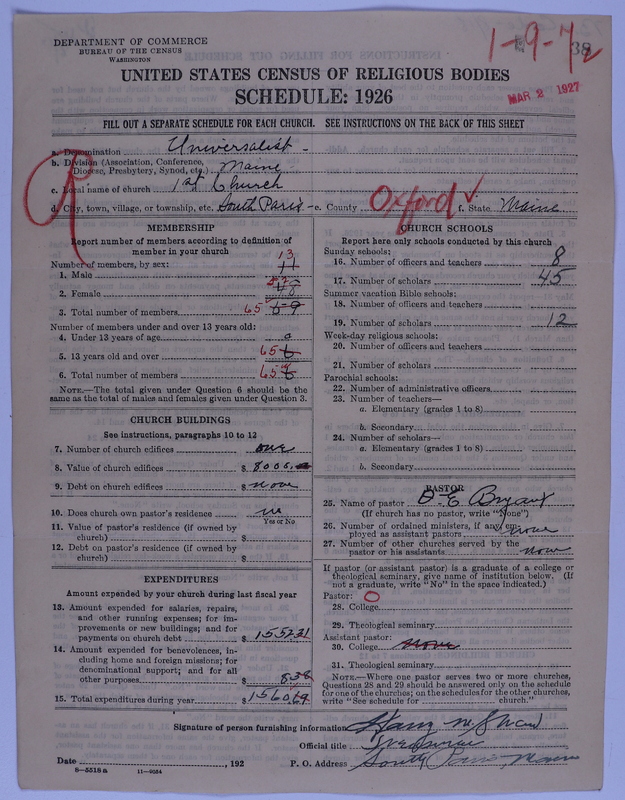 DEPARTMENT OF COMMERCE
BUREAU OF THE CENSUS
WASHINGTON
1-9-7
38
MAR 2 1927
UNITED STATES CENSUS OF RELIGIOUS BODIES
SCHEDULE: 1926
FILL OUT A SEPARATE SCHEDULE FOR EACH CHURCH. SEE INSTRUCTIONS ON THE BACK OF THIS SHEET
R
a. Denomination Universalist
b. Division (Association, Conference, Diocese, Presbytery, Synod, etc.) Maine
c. Local name of church 1st Church
d. City, town, village, or township, etc. South Paris e. County Oxford f. State Maine
MEMBERSHIP
Report number of members according to definition of
member in your church
Number of members, by sex:
13
1. Male 11
2. Female
3. Total number of members 65
Number of members under and over 13 years old:
4. Under 13 years of age 0
5. 13 years old and over 65
6. Total number of members 65
NOTE.—The total given under Question 6 should be the
same as the total of males and females given under Question 3.
CHURCH BUILDINGS
See instructions, paragraphs 10 to 12
7. Number of church edifices one
8. Value of church edifices $ 8000.
9. Debt on church edifices $ none
10. Does church own pastor's residence no
Yes or No
11. Value of pastor's residence (if owned by
church) $
12. Debt on pastor's residence (if owned by
church) $
EXPENDITURES
Amount expended by your church during last fiscal year
13. Amount expended for salaries, repairs,
and other running expenses; for im-
provements or new buildings; and for
payments on church debt $ 1552.31
14. Amount expended for benevolences, in-
cluding home and foreign missions; for
denominational support; and for all
other purposes $ 8.38
15. Total expenditures during year $ 1560.69
CHURCH SCHOOLS
Report here only schools conducted by this church
Sunday schools:
16. Number of officers and teachers 8
17. Number of scholars 45
Summer vacation Bible schools:
18. Number of officers and teachers
19. Number of scholars 12
Week-day religious schools:
20. Number of officers and teachers
21. Number of scholars
Parochial schools:
22. Number of administrative officers
23. Number of teachers—
a. Elementary (grades 1 to 8)
b. Secondary
24. Number of scholars—
a. Elementary (grades 1 to 8)
b. Secondary
PASTOR
25. Name of pastor D. E. Bryant
(If church has no pastor, write "None")
26. Number of ordained ministers, if any, em-
ployed as assistant pastors none
27. Number of other churches served by the
pastor or his assistants none
If pastor (or assistant pastor) is a graduate of a college or
theological seminary, give name of institution below. (If
not a graduate, write "No" in the space indicated.)
Pastor: O
28. College
29. Theological seminary
Assistant pastor:
30. College none
31. Theological seminary
NOTE.—Where one pastor serves two or more churches,
Questions 28 and 29 should be answered only on the schedule
for one of the churches; on the schedules for the other churches,
write "See schedule for church."
Signature of person furnishing information Harry M. Shaw
Official title Treasurer
Date , 192
P. O. Address South Paris, Maine
8-5518a 11-9054